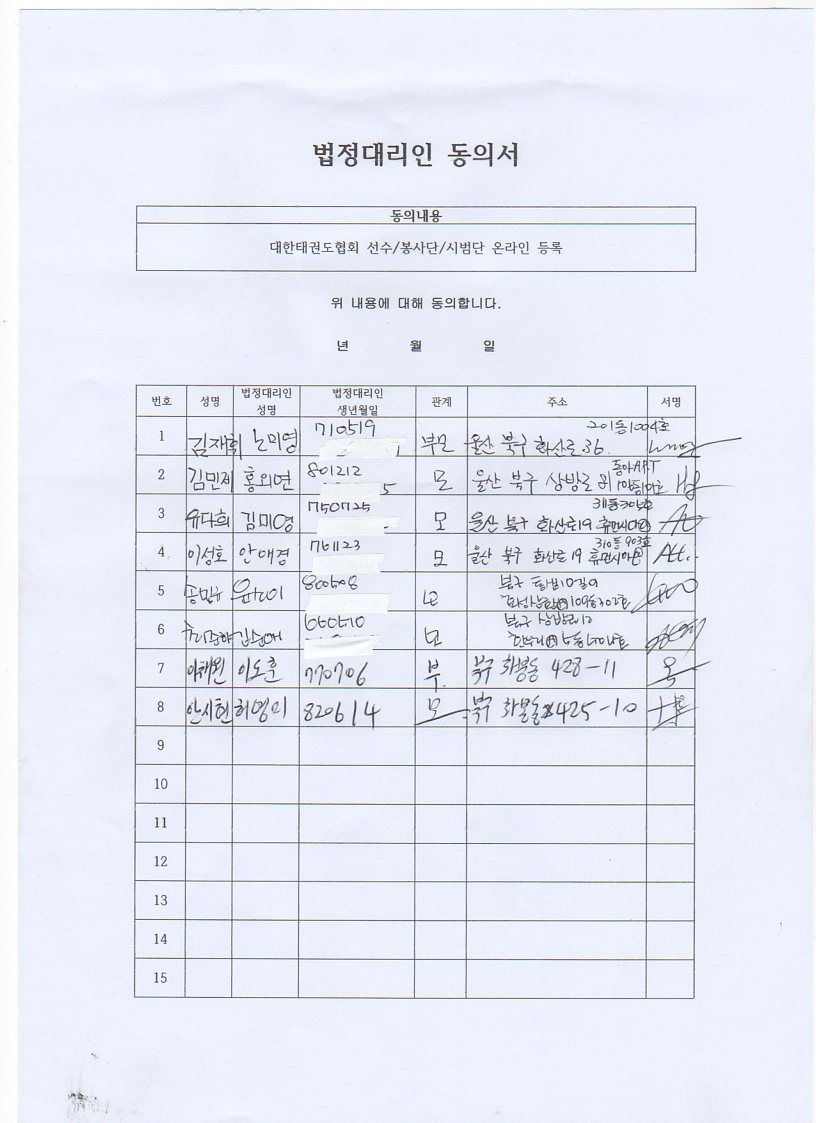 법정대리인 동의서
동의내용
대한태권도협회 선수/봉사단/시범단 온라인 등록
위 내용에 대해 동의합니다.
년 월 일
번호 성명 법정대리인 성명 법정대리인 생년월일 관계 주소 서명
1 김재휘 노미영 710519 부모 울산 북구 화산로 36. 201동1004호
2 김민제 홍외연 801212 5 모 울산 북구 상방로 동아APT
3 유다희 김미영 750725 모 울산 북구 화산로19 휴먼시아
4 이성호 안애경 761123 모 울산 북구 화산로19 휴먼시아 310동 903호
5 송민규 800508 모 북구 109동302호
6 김순애 660510 모 북구 상방로12
7 이채원 이도훈 770706 부 북구 화봉동 428-11
8 안시현 허영미 820614 모 북구 화봉동 425-10
9
10
11
12
13
14
15